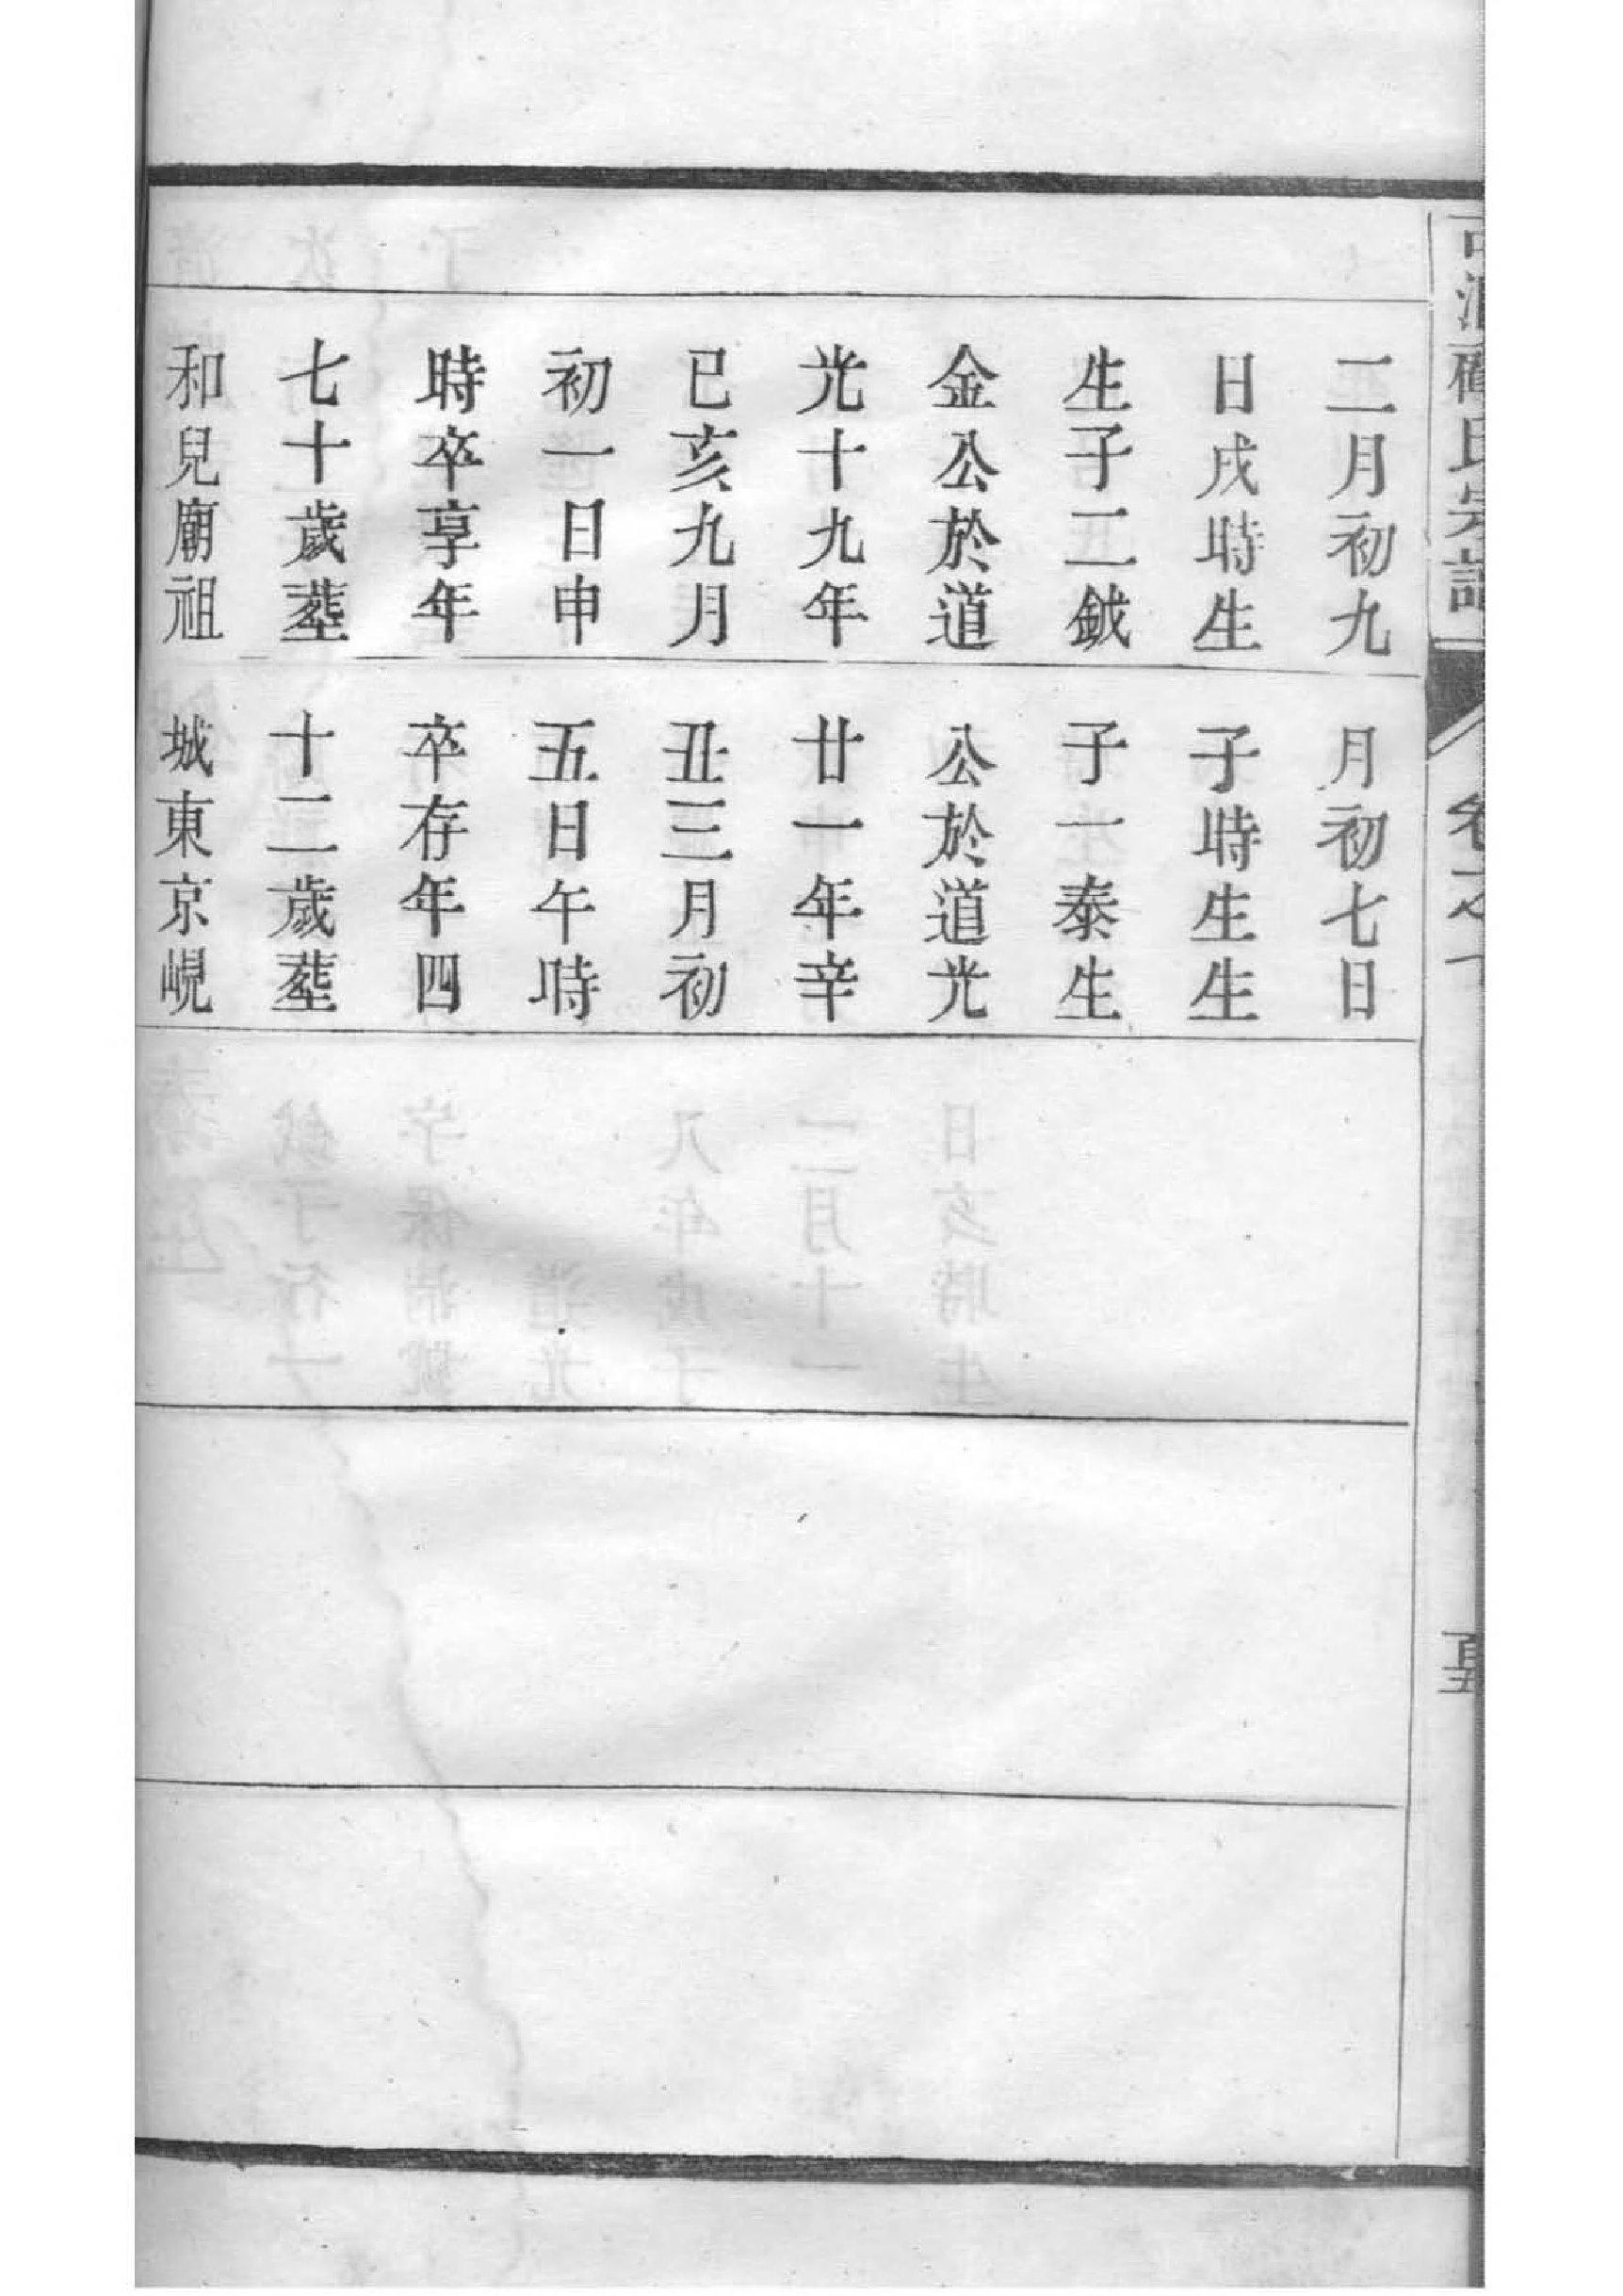 二月初九
日戌時生
生子二鉞
金公於道
光十九年
已亥九月
初一日申
時卒享年
七十歲塟
和兒廟祖
月初七日
子時生生
子一泰生
公於道光
廿一年辛
丑三月初
五日午時
卒存年四
十二歲塟
城東京峴
氏宗譜
卷之十